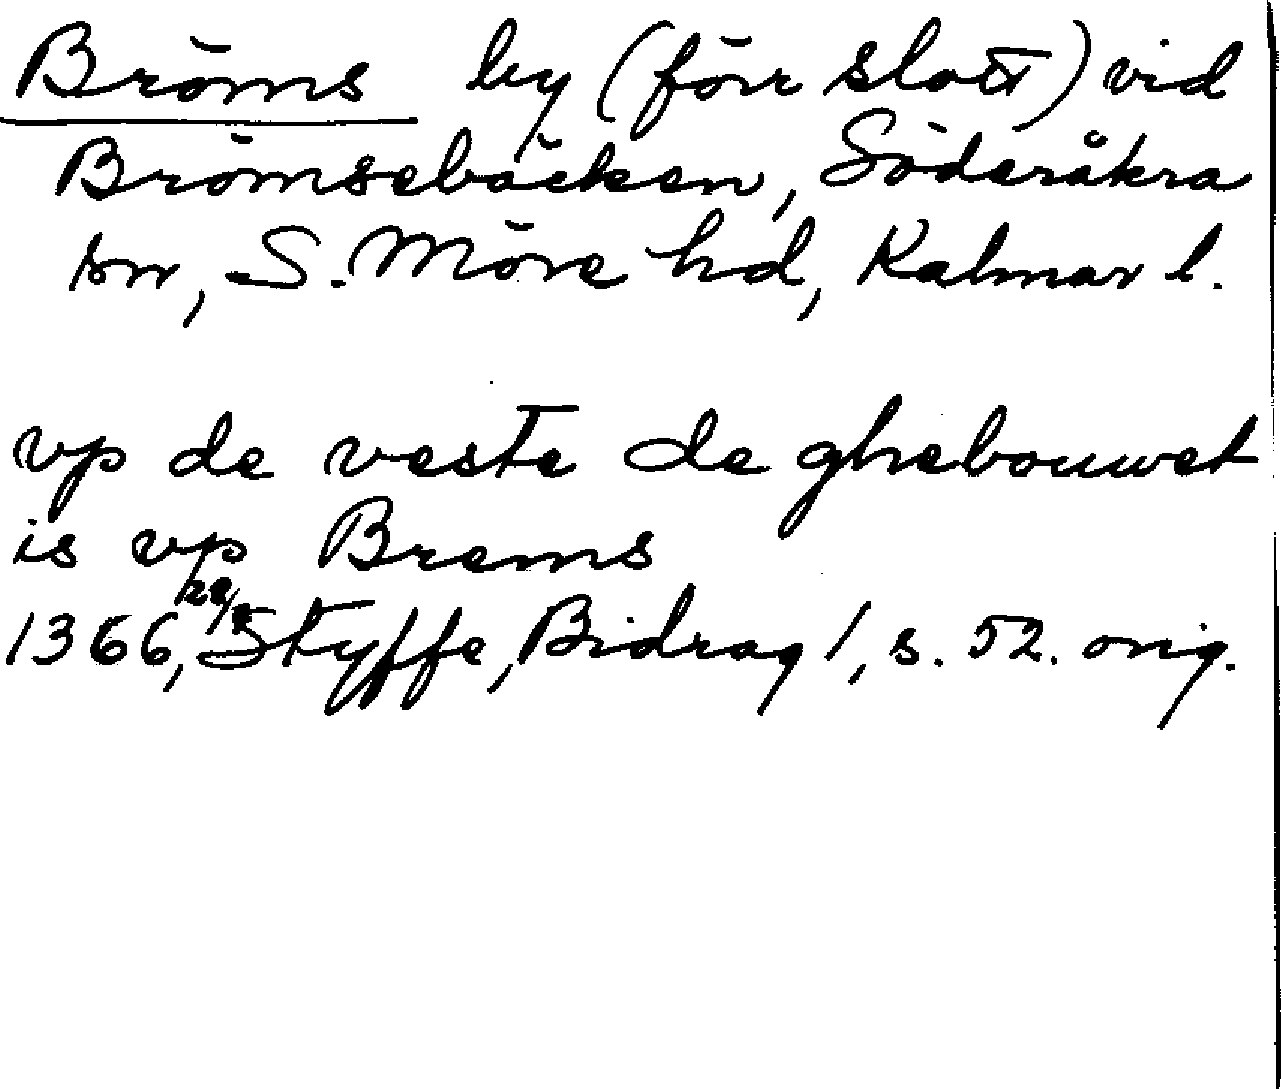 Bröms by (förr slott) vid
Brömsebäcken, Söderåkra
sn, S. Möre hd, Kalmar l.
vp de veste de ghebouwet
is vp Brems
1366, Styffe, Bidrag 1, s. 52. orig.